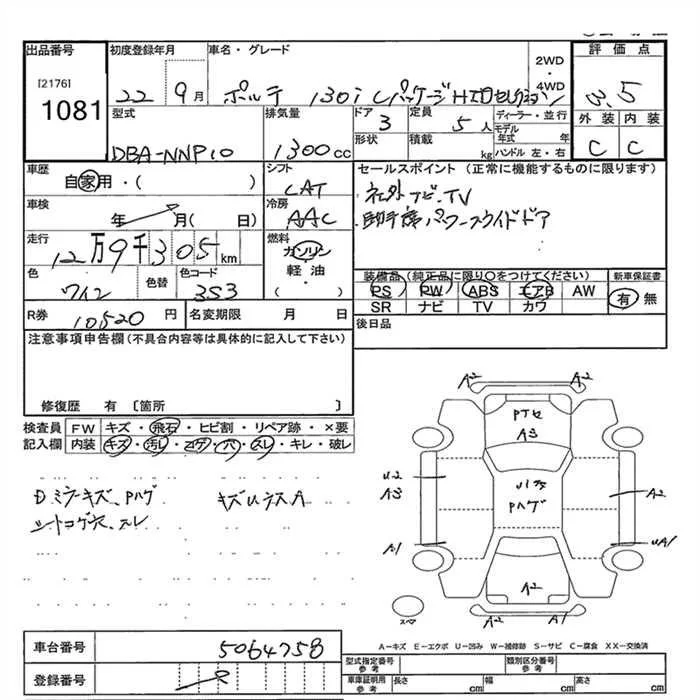 出品番号 初度登録年月 車名・グレード 2WD ・ 4WD 評価点
[2176]
1081 22 9月 ポルテ 130i Cパッケージ HIDセレクション 3.5
型式 排気量 ドア 3 定員 5人 ディーラー・並行 外装 内装
モデル年式 年
DBA-NNP10 1300cc 形状 積載 kg ハンドル 左・右 C C
車歴 自家用・( ) シフト CAT セールスポイント (正常に機能するものに限ります)
車検 年 月( 日) 冷房 AAC 社外ナビ、TV
助手席パワースライドドア
走行 12万9千305km 燃料 ガソリン・軽油・( )
色 ワイン 色替 色コード 3S3
装備品(純正品に限り〇をつけてください) 新車保証書
PS PW ABS エアB AW 有 無
SR ナビ TV カワ
R券 10520円 名変期限 月 日 後日品
注意事項申告欄(不具合内容等は具体的に記入して下さい)
修復歴 有〔箇所 〕
検査員記入欄 FW キズ・飛石・ヒビ割・リペア跡・×要
内装 キズ・汚レ・コゲ・穴・スレ・キレ・破レ
Dミラーキズ、Pハゲ キズUラスA
シートコゲ穴、スレ
A2 A2
PTセ
A3
U2
A3
Pハゲ
A2
A1
UA1
A2
A2 A1
スペア
A-キズ E-エクボ U-凹み W-補修跡 S-サビ C-腐食 XX-交換済
車台番号 5064758
登録番号
型式指定番号 参考 類別区分番号 参考
車庫証明用 参考 長さ cm 幅 cm 高さ cm